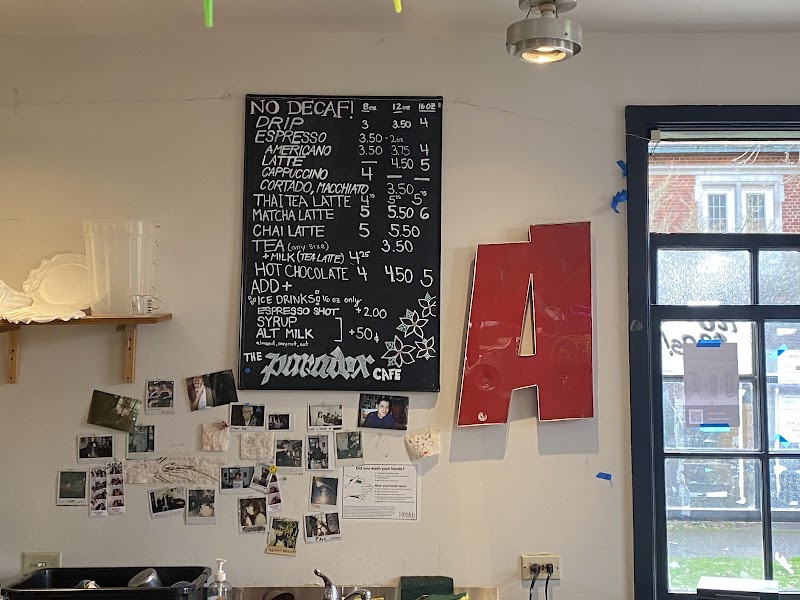 NO DECAF! 8oz 12oz 16oz
DRIP 3 3.50 4
ESPRESSO 3.50 - 2oz
AMERICANO 3.50 3.75 4
LATTE — 4.50 5
CAPPUCCINO 4 — —
CORTADO, MACCHIATO 3.50
THAI TEA LATTE 4.75 5.25 5.75
MATCHA LATTE 5 5.50 6
CHAI LATTE 5 5.50
TEA (any size) 3.50
+ MILK (TEA LATTE) 4.25
HOT CHOCOLATE 4 4.50 5
ADD +
ICE DRINKS 16 oz only
ESPRESSO SHOT +2.00
SYRUP
ALT MILK ] +50¢
almond, coconut, oat
THE paradox CAFE
A
Did you wash your hands?
Health